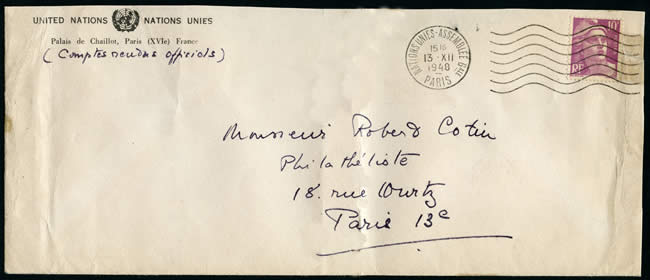 UNITED NATIONS NATIONS UNIES
Palais de Chaillot, Paris (XVIe) France
(Comptes rendus officiels)
NATIONS UNIES-ASSEMBLEE Gale
15 16
13 - XII
1948
PARIS
10F
RF
Monsieur Robert Cotin
Philathéliste
18. rue Wurtz
Paris 13e